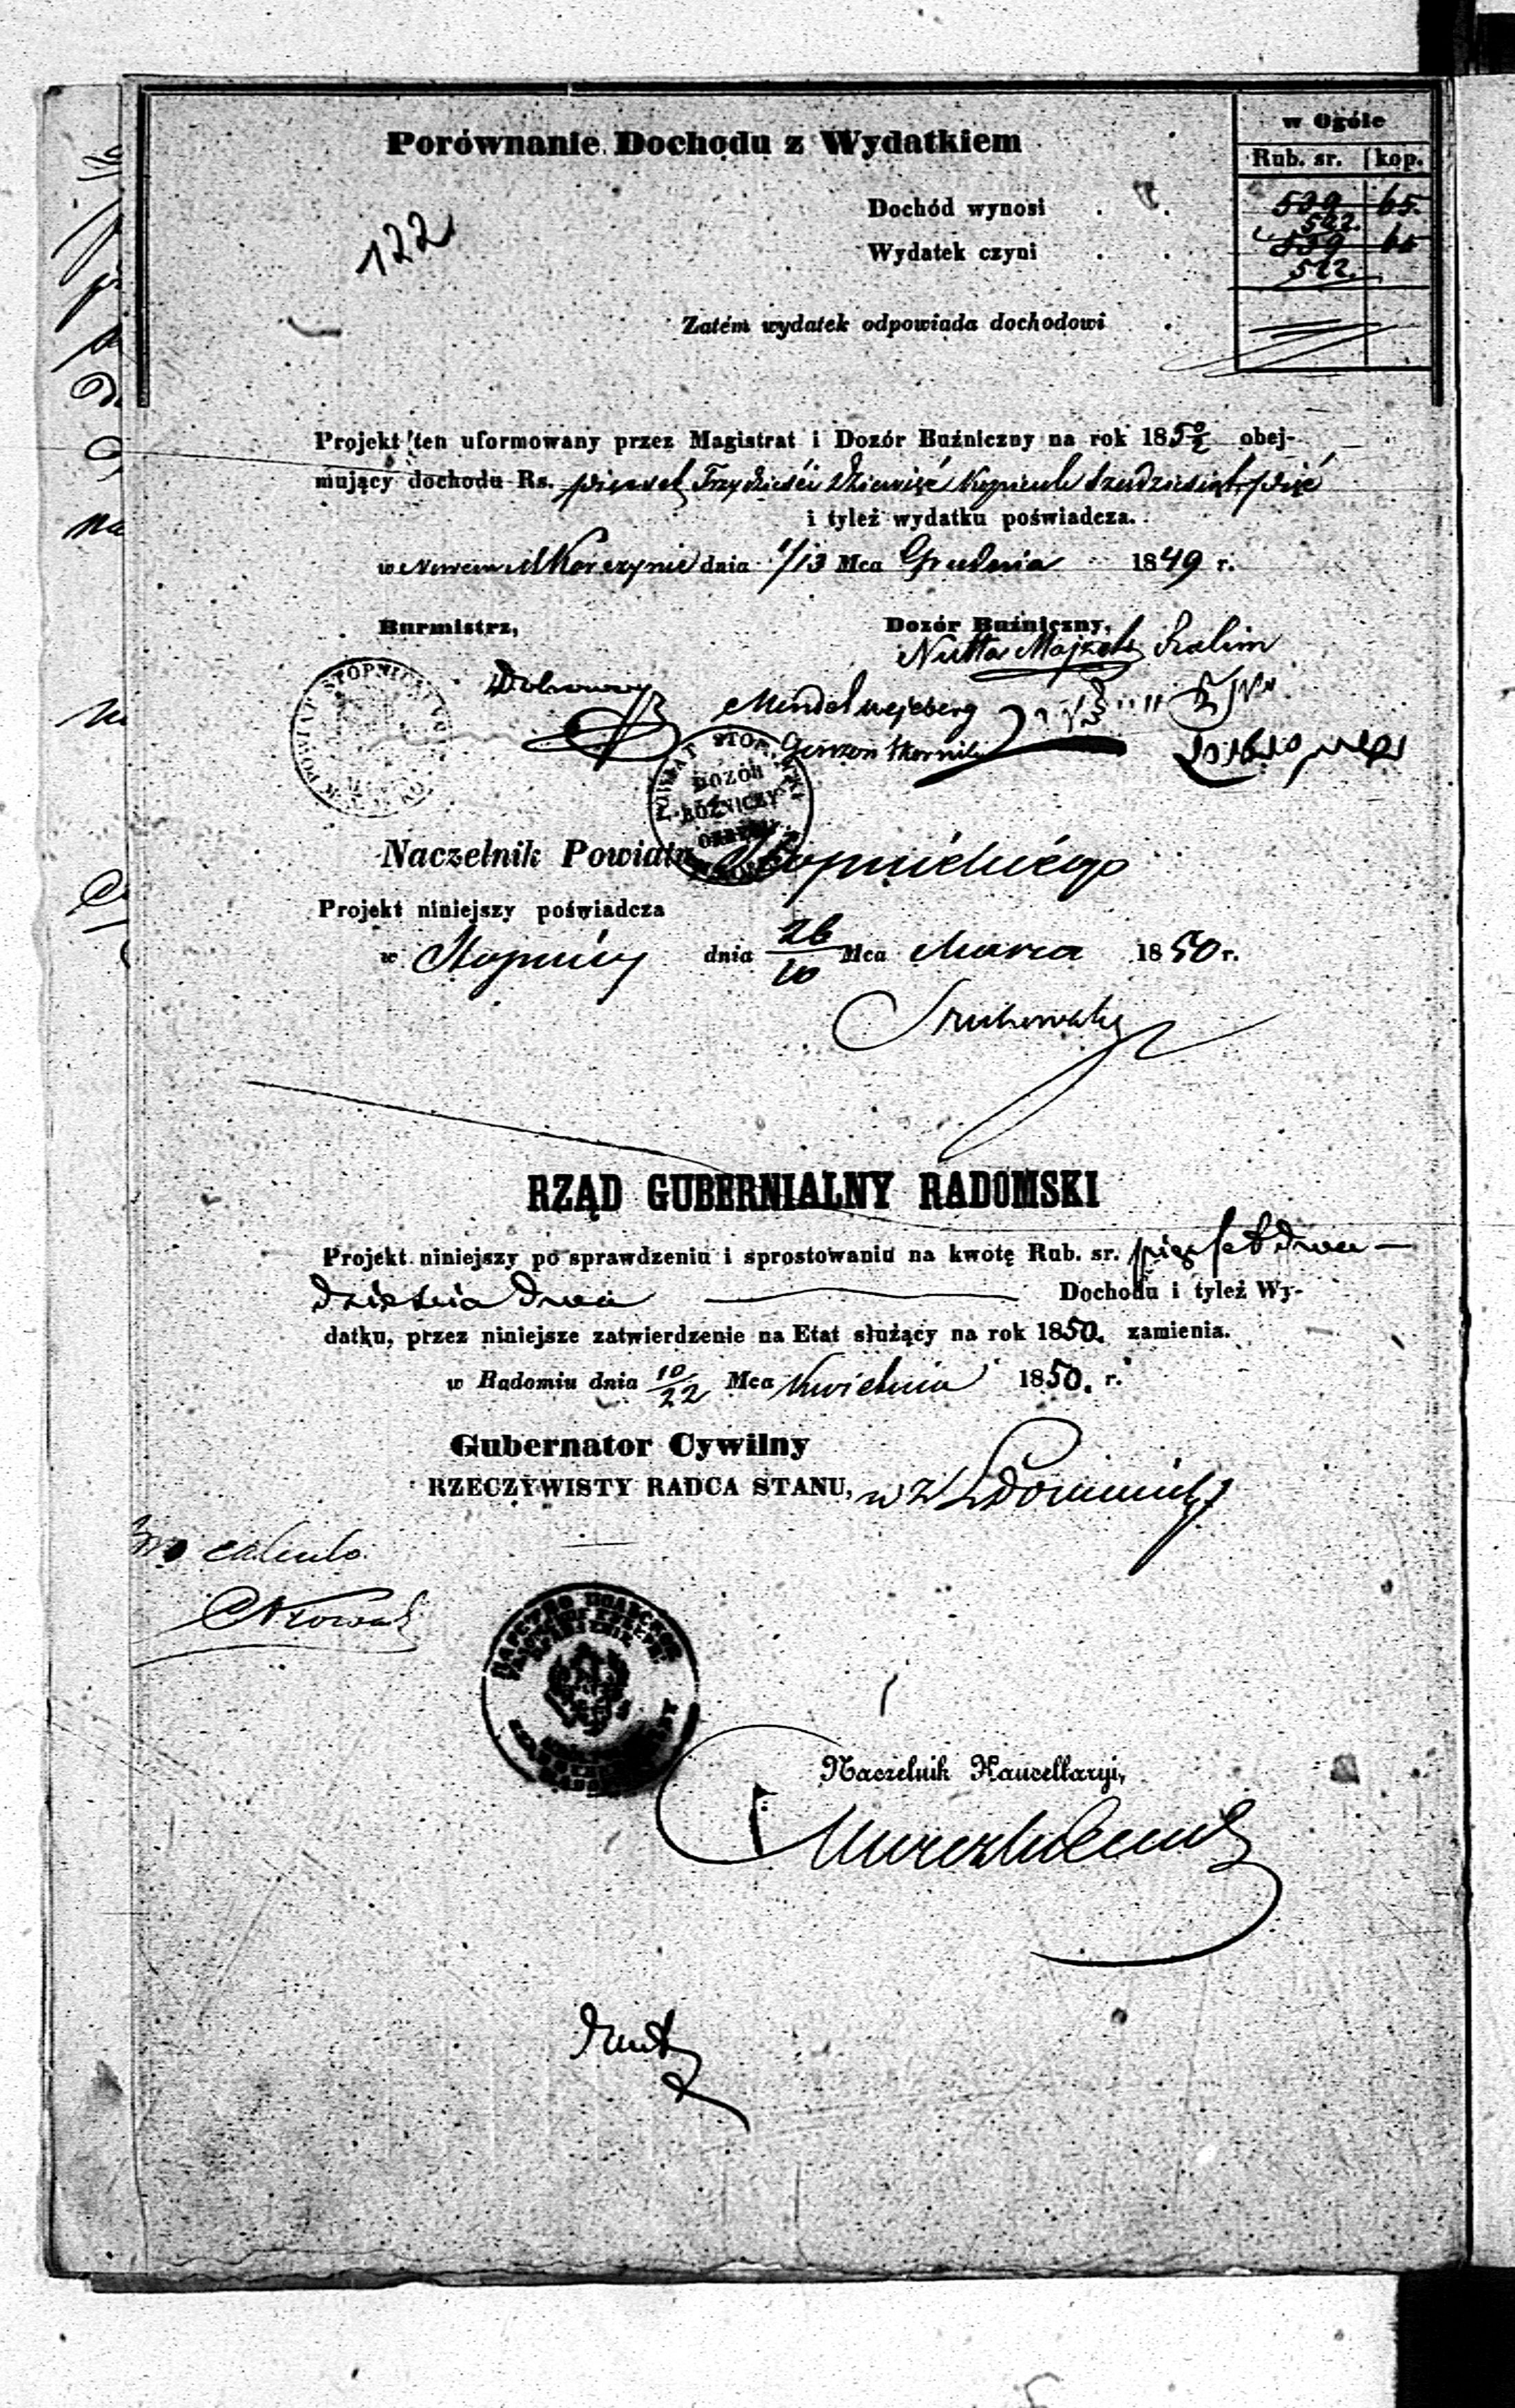 Porównanie Dochodu z Wydatkiem
w Ogóle
Rub. sr. kop.
122
Dochód wynosi 539 65.
522.
Wydatek czyni 539 65
522.
Zatém wydatek odpowiada dochodowi
Projekt ten uformowany przez Magistrat i Dozór Buźniczny na rok 185 0/2 obej-
mujący dochodu Rs. pięcset Trzydzieści Dziewięć Kopieiek sześćdziesiąt pięć
i tyleż wydatku poświadcza.
w Nowem M Korczynie dnia 1/13 Mca Grudnia 1849 r.
Burmistrz,
Dozór Buźniczny,
Nutta Majzels Szalim
Mendel wejcberg
POWIAT STOPNICKI
POWIAT STOP
DOZÓR
BÓŻNICZY
OKRĘGU
Naczelnik Powiatu Stopnickiego
Projekt niniejszy poświadcza
w Stopnicy dnia 26/10 Mca Marca 1850 r.
RZĄD GUBERNIALNY RADOMSKI
Projekt niniejszy po sprawdzeniu i sprostowaniu na kwotę Rub. sr. pięćset dwa-
dzieścia dwa Dochodu i tyleż Wy-
datku, przez niniejsze zatwierdzenie na Etat służący na rok 1850. zamienia.
w Radomiu dnia 10/22 Mca Kwietnia 1850. r.
Gubernator Cywilny
RZECZYWISTY RADCA STANU, w z
calculo
ЦАРСТВО ПОЛЬСКОЕ
Naczelnik Kancellaryi,